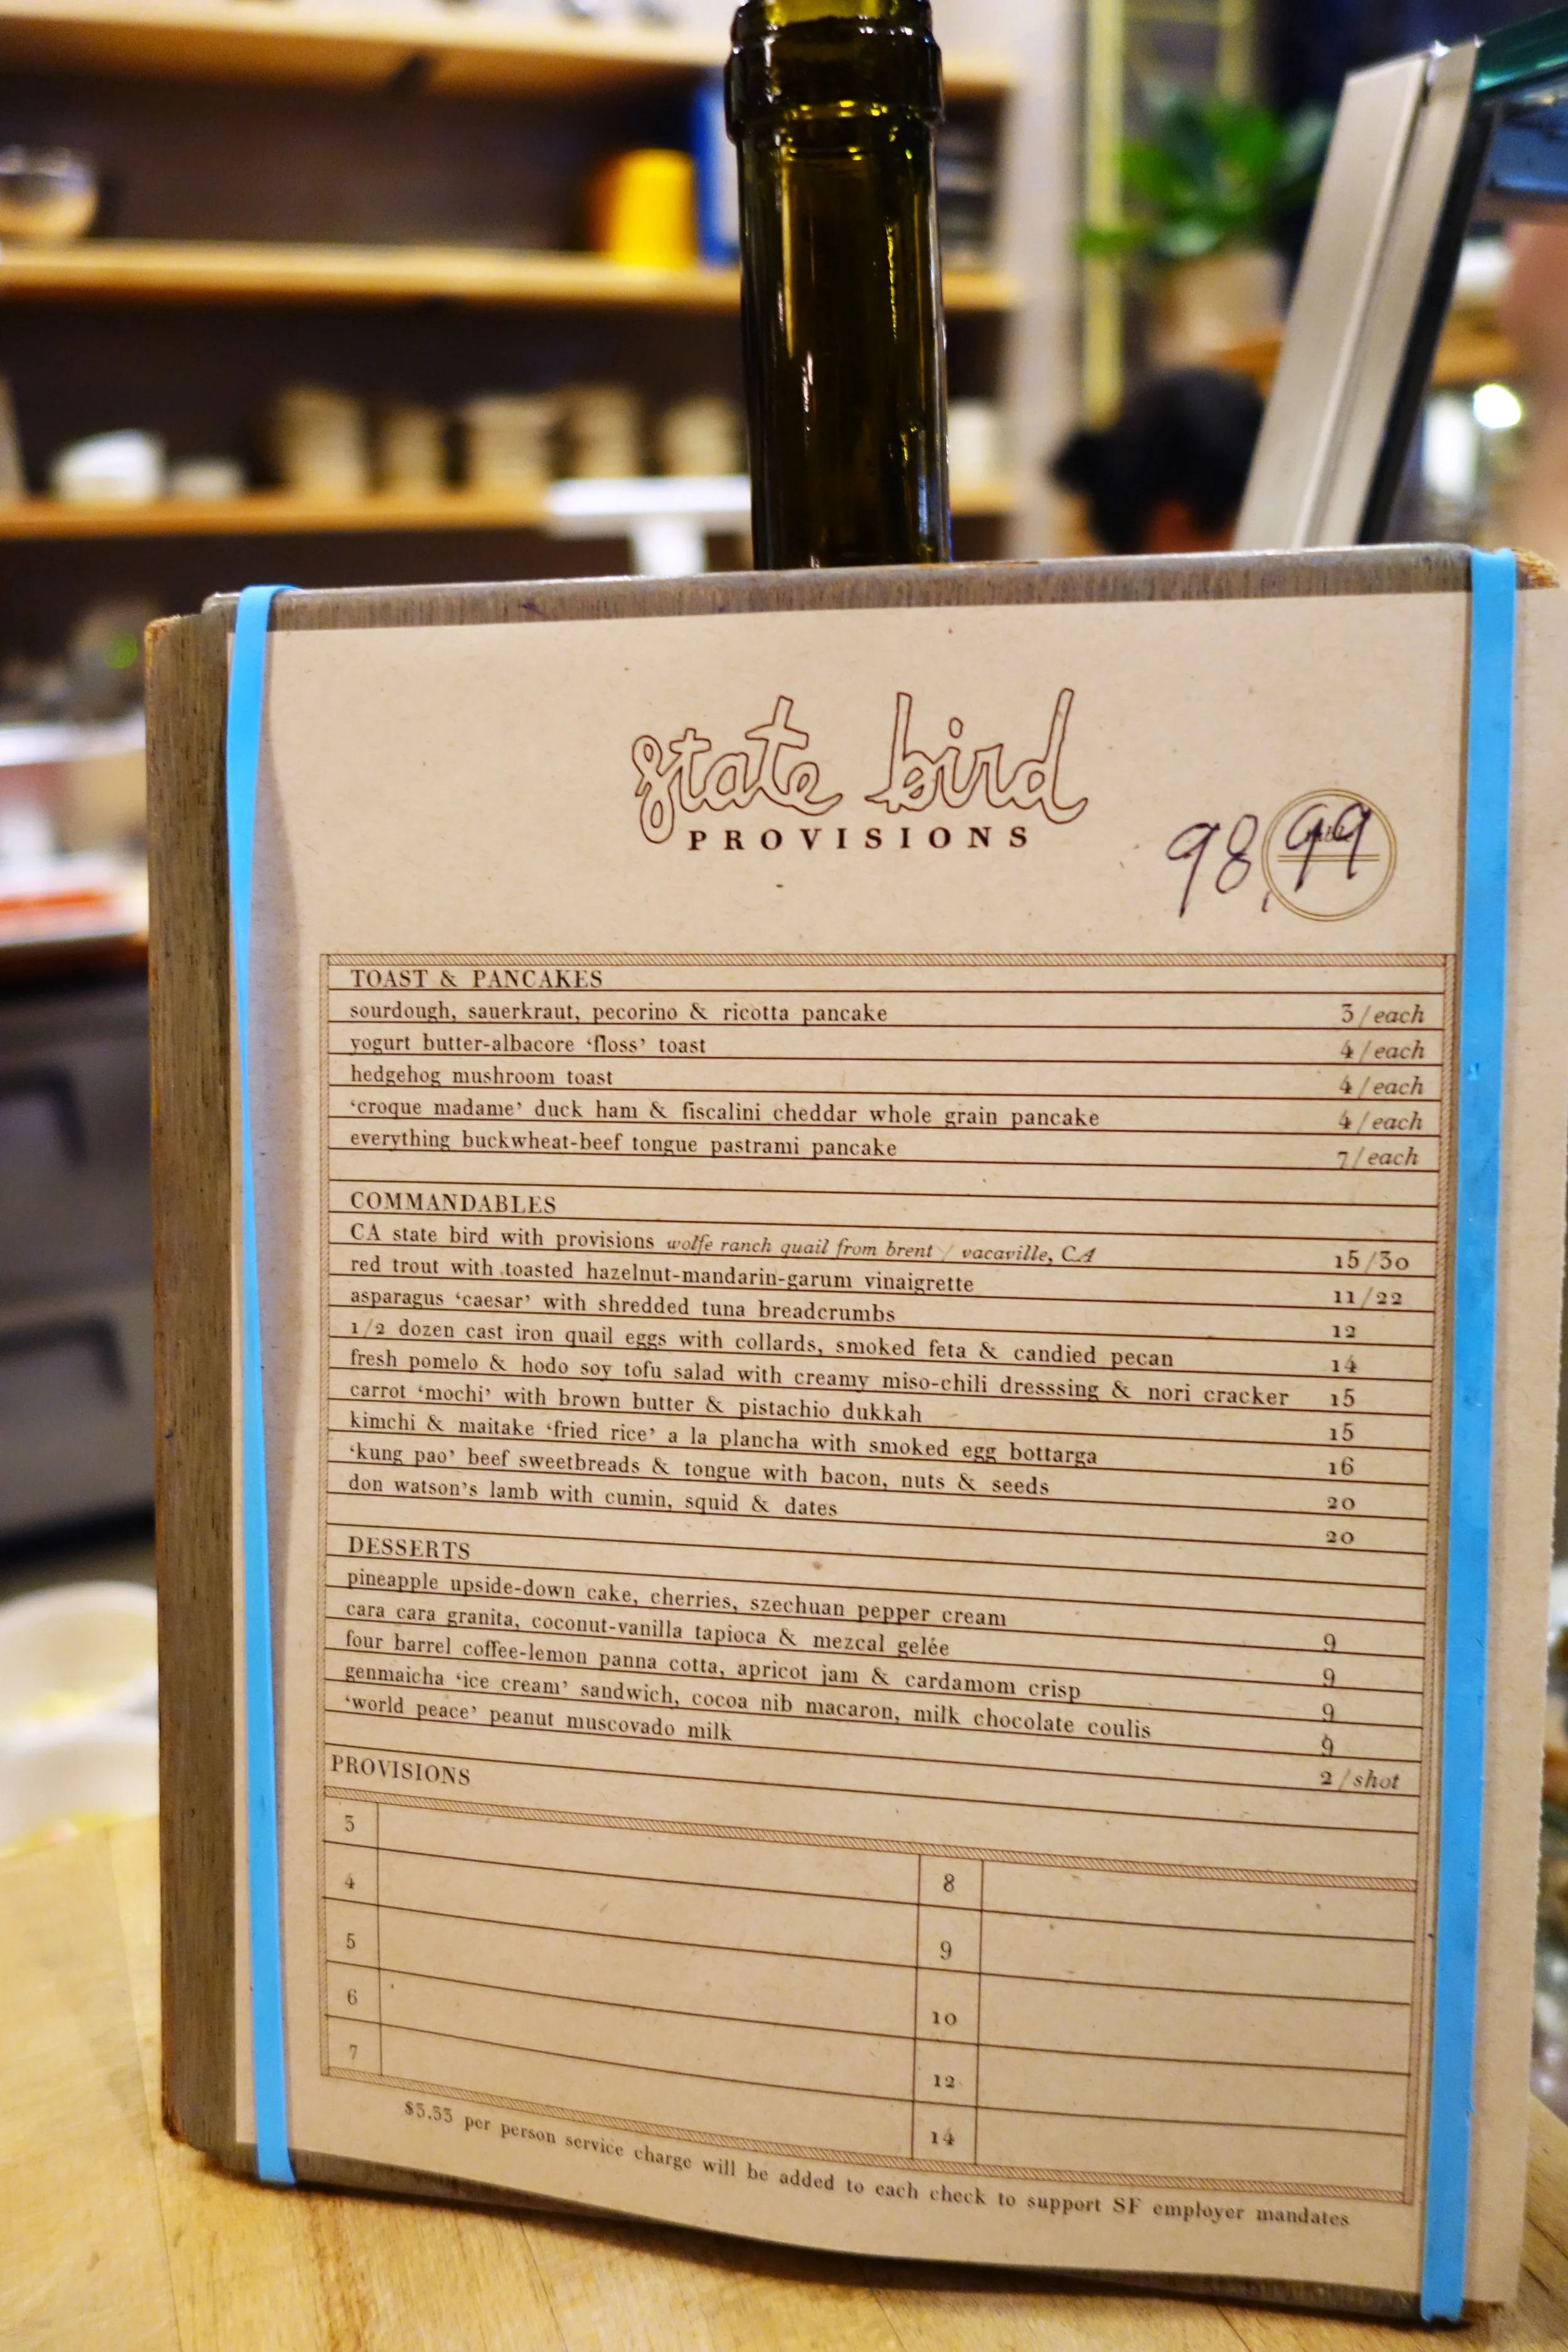 state bird
PROVISIONS
98, 99
TOAST & PANCAKES
sourdough, sauerkraut, pecorino & ricotta pancake 3/each
yogurt butter-albacore ‘floss’ toast 4/each
hedgehog mushroom toast 4/each
‘croque madame’ duck ham & fiscalini cheddar whole grain pancake 4/each
everything buckwheat-beef tongue pastrami pancake 7/each
COMMANDABLES
CA state bird with provisions wolfe ranch quail from brent / vacaville, CA 15/30
red trout with toasted hazelnut-mandarin-garum vinaigrette 11/22
asparagus ‘caesar’ with shredded tuna breadcrumbs 12
1/2 dozen cast iron quail eggs with collards, smoked feta & candied pecan 14
fresh pomelo & hodo soy tofu salad with creamy miso-chili dresssing & nori cracker 15
carrot ‘mochi’ with brown butter & pistachio dukkah 15
kimchi & maitake ‘fried rice’ a la plancha with smoked egg bottarga 16
‘kung pao’ beef sweetbreads & tongue with bacon, nuts & seeds 20
don watson’s lamb with cumin, squid & dates 20
DESSERTS
pineapple upside-down cake, cherries, szechuan pepper cream 9
cara cara granita, coconut-vanilla tapioca & mezcal gelée 9
four barrel coffee-lemon panna cotta, apricot jam & cardamom crisp 9
genmaicha ‘ice cream’ sandwich, cocoa nib macaron, milk chocolate coulis 9
‘world peace’ peanut muscovado milk 2/shot
PROVISIONS
3 8
4 9
5 10
6 12
7 14
per person service charge will be added to each check to support SF employer mandates